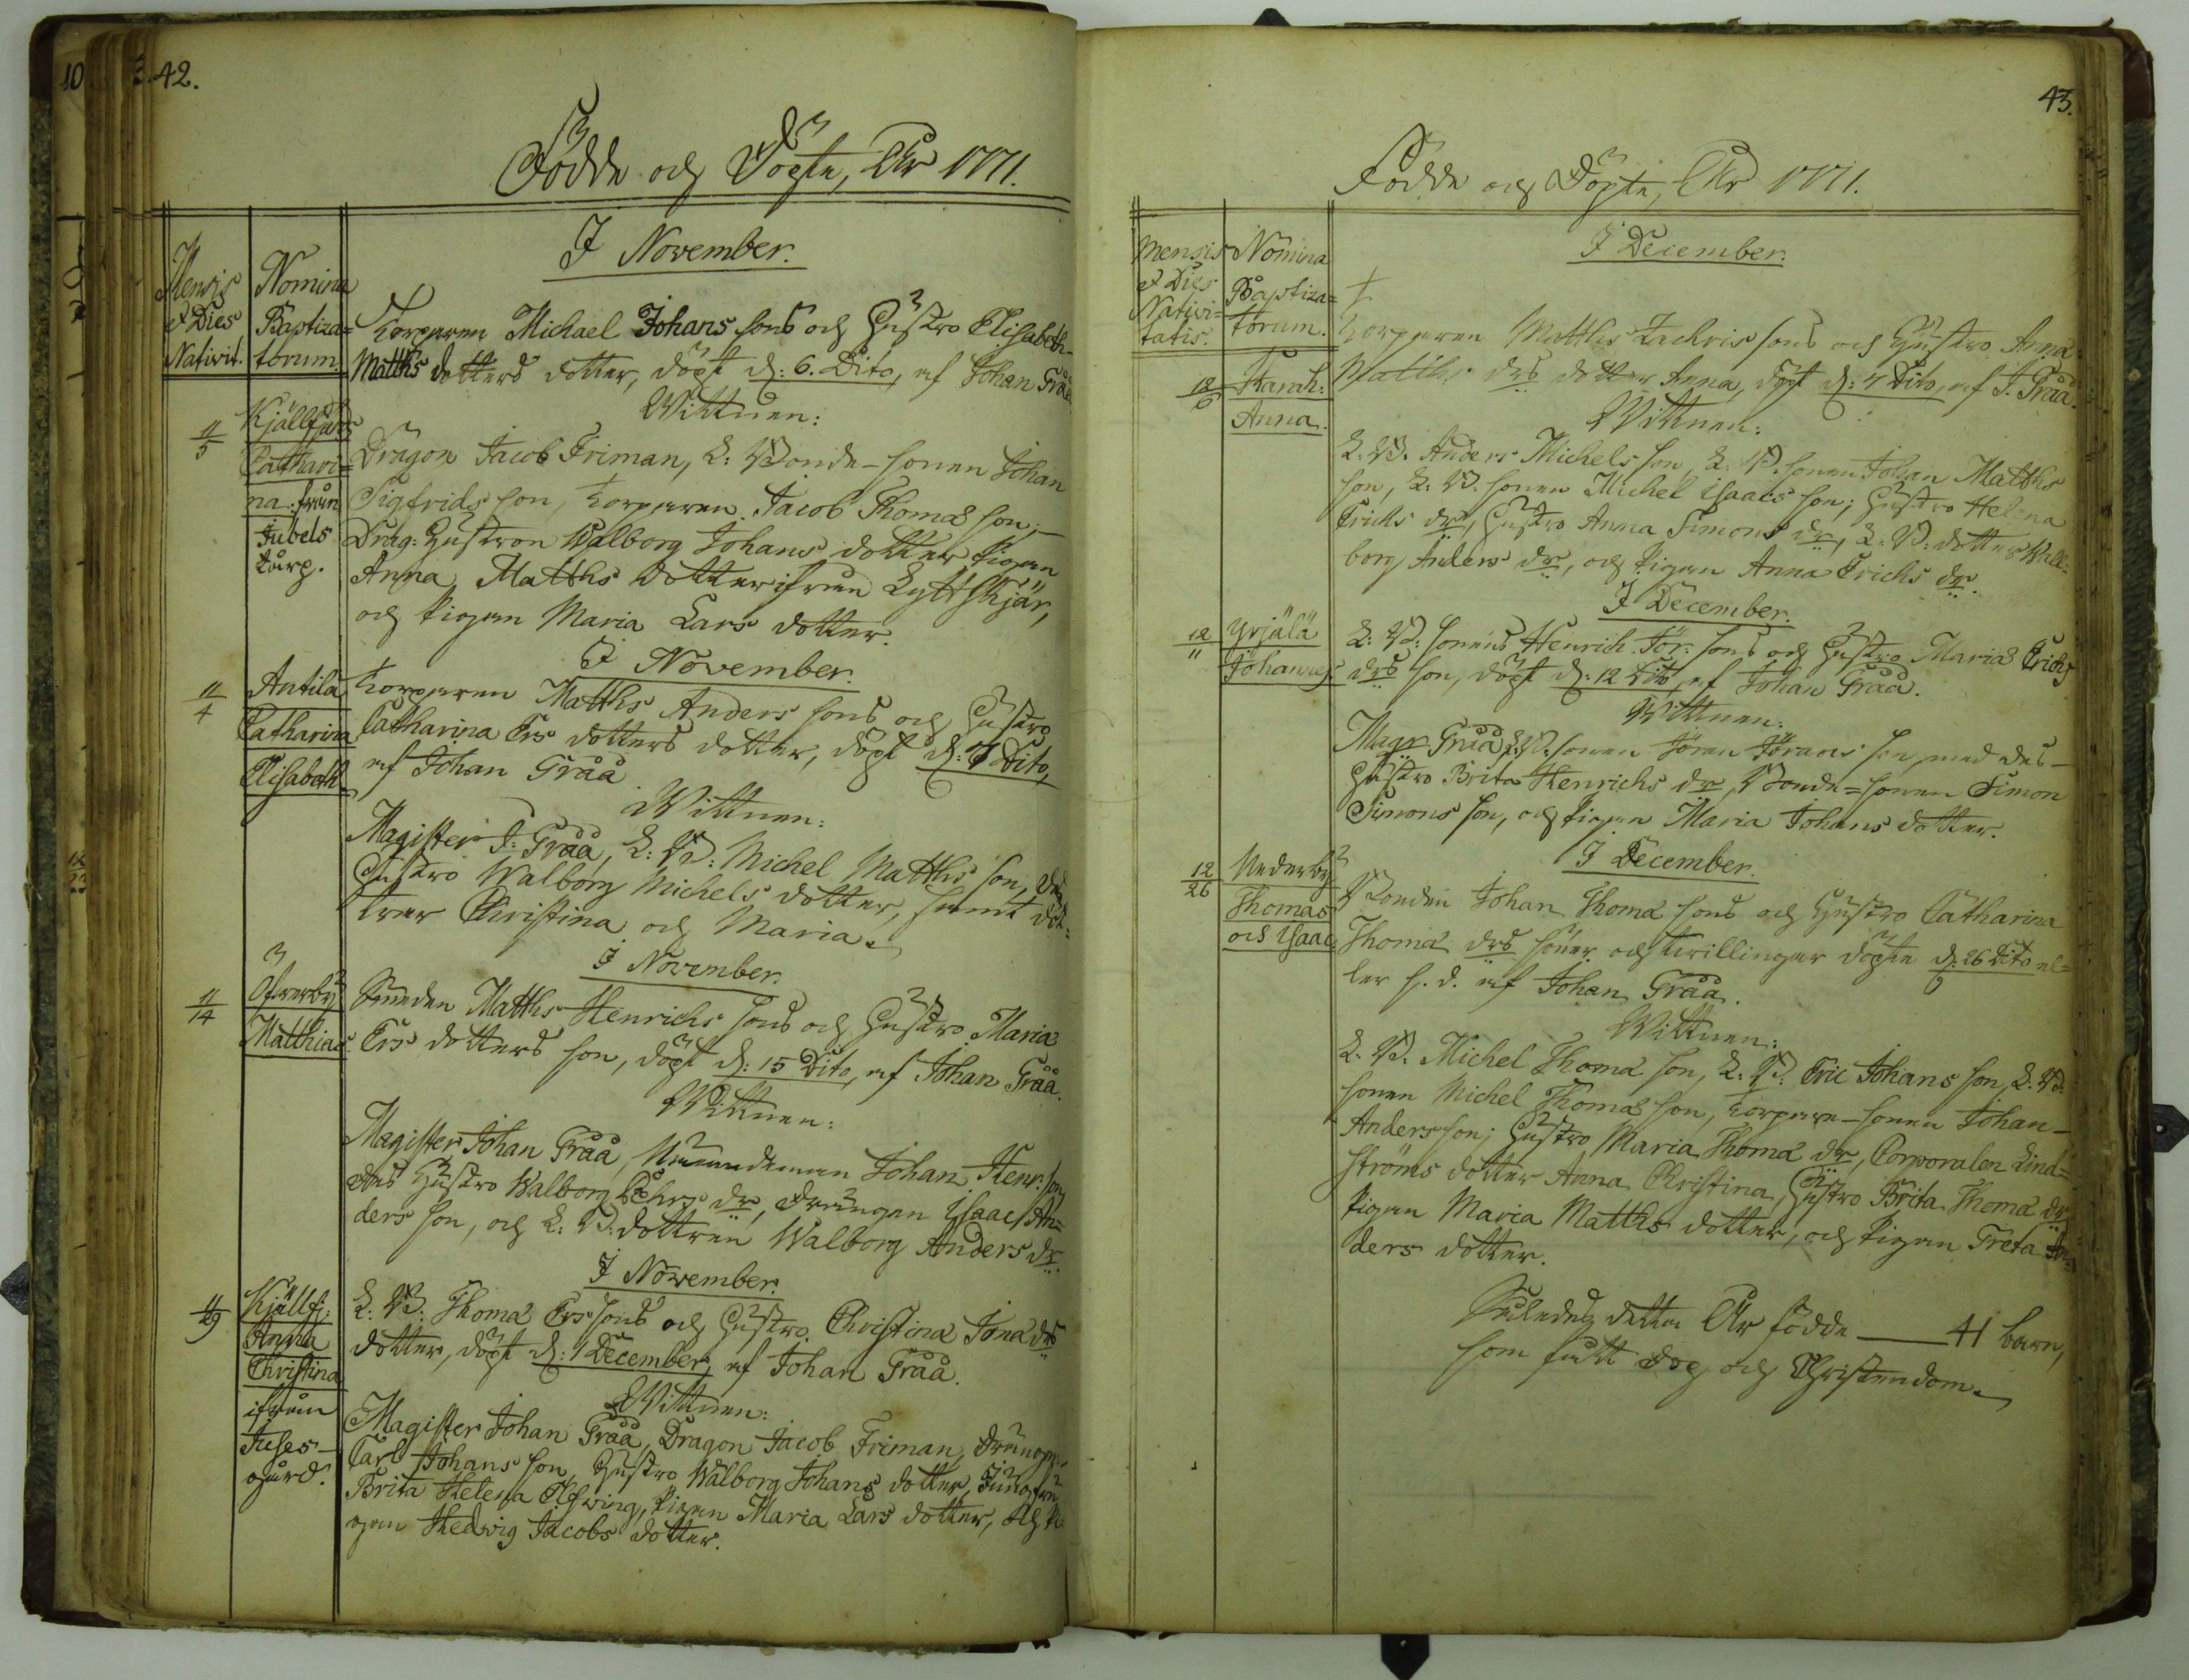 42.
Födde och Döpte, Åhr 1771.
Mensis et Dies Nativit.
Nomina Baptizatorum
I November.
11/5
Kjällfjärd
Cathari=
na. från
Jubels
torp.
Torparen Michael Johans sons och Hustro Elisabeth
Matths dotters dotter, döpt d: 6. Dito, af Johan Gråå.
Wittnen:
Dragon Jacob Friman, L: Bonde-sonen Johan
Sigfrids son, Torparen Jacob Thomæ son,
Drag: Hustron Walborg Johans dotter Pigan
Anna Matths dotter ifrån Lyttskjär,
och Pigan Maria Lars dotter.
I November.
11/4
Antila
Catharina
Elisabeth
Torparen Matths Anders sons och Hustro
Catharina Ers dotters dotter, döpt d: 7 Dito,
af Johan Gråå
Wittnen:
Magister J: Gråå, L: B: Michel Matths son, des
Hustro Walborg Michels dotter, samt döt=
trar Christina och Maria.
I November.
11/14
Öfverby
Matthias
Smeden Matths Henrichs sons och Hustro Maria
Ers dotters son, döpt d: 15 Dito, af Johan Gråå.
Wittnen:
Magister Johan Gråå, Nämndeman Johan Henr: son
des Hustro Walborg dr, Drängen Isaac An=
ders son, och L: B: dottren Walborg Anders dr.
I November.
11/29
Kjällfj:
Anna
Christina
ifrån
Juses-
gård.
L: B: Thomæ Ers sons och Hustro Christina Jonæ drs
dotter, döpt d: 1 December, af Johan Gråå.
Wittnen:
Magister Johan Gråå, Dragon Jacob Friman, Drängen
Carl Johans son, Hustro Walborg Johans dotter, Jungfru
Brita Helena Elfving, Pigan Maria Lars dotter, och Pi=
gan Hedvig Jacobs dotter.
43.
Födde och Döpte, Åhr 1771.
Mensis et Dies Nativi=tatis.
Nomina Baptiza=torum.
I December.
12/6
Starck:
Anna.
Torparen Matths Zachris sons och Hustro Anna
Matths drs dotter Anna, döpt d: 7 Dito, af J. Gråå.
Wittnen:
L: B. Anders Michels son, L: B. sonen Johan Matths
son, L: B. sonen Michel Isaacs son; Hustro Helena
Erichs dr, Hustro Anna Simons dr, L: B: dotter Wal=
borg Anders dr, och Pigan Anna Erichs dr.
I December.
12/11
Yrjälä
Johannes
L: B: sonens Henrich Jör: sons och Hustro Maria Erichs
drs son, döpt d: 12 Dito, af Johan Gråå.
Wittnen:
Magr Gråå, L:B: sonen Jöran Jörans son, med des
Hustro Brita Henrichs dr, Bonde=sonen Simon
Simons son, och Pigan Maria Johans dotter.
I December.
12/26
Nederby
Thomas
och Isaac
Bonden Johan Thomæ sons och Hustro Catharina
Thomæ drs söner och tvillingar döpte d: 26 Dito el=
ler s. d. af Johan Gråå.
Wittnen:
L: B. Michel Thomæ son, L: B: Eric Johans son, L: B:
sonen Michel Thomæ son, Torpare-sonen Johan
Anders son; Hustro Maria Thomæ dr, Corporalen Lind=
ströms dotter Anna Christina, Hustro Brita Thomæ dr
Pigan Maria Matths dotter, och Pigan Greta An=
ders dotter.
Således detta År födde — 41 barn,
som fått dop och Christendom.